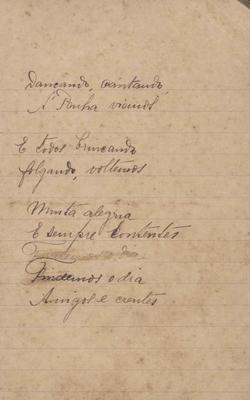 Dançando, cantando,
A' Penha viemos
E todos brincando
folgando, voltemos
Munta alegria
E sempre contentes
Findemos o dia
Findemos o dia
Amigos e crentes